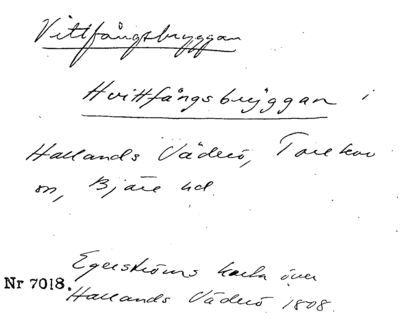 Vittfångsbryggan
Hvittfångsbryggan i
Hallands Väderö, Torekov
sn, Bjäre hd.
Egerströms karta över
Nr 7018. Hallands Väderö 1808.